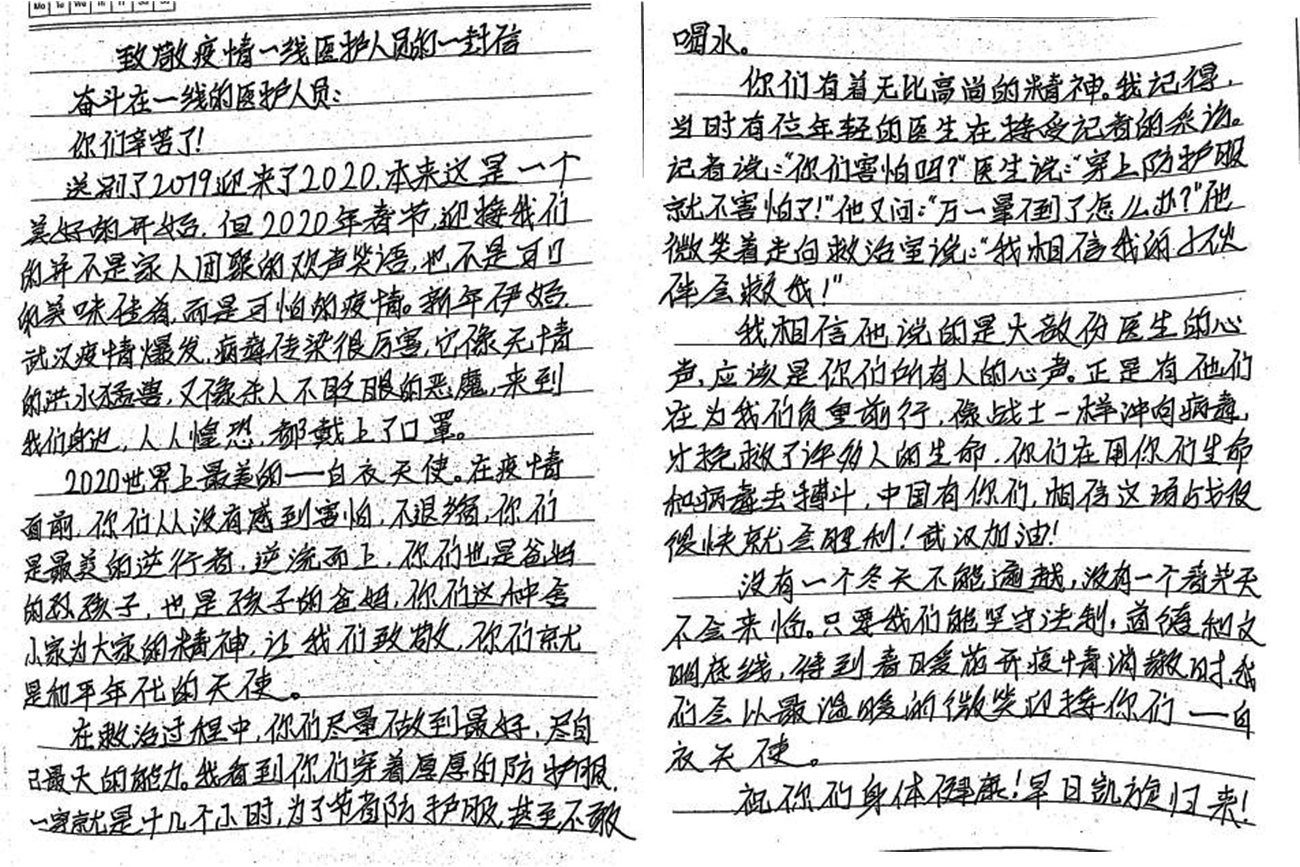 Mo Tu We Th Fr Sa Su
致敬疫情一线医护人员的一封信
奋斗在一线的医护人员:
你们辛苦了!
送别了2019迎来了2020,本来这是一个
美好的开始,但2020年春节,迎接我们
的并不是家人团聚的欢声笑语,也不是可口
的美味佳肴,而是可怕的疫情。新年伊始,
武汉疫情爆发,病毒传染很厉害,它像无情
的洪水猛兽,又像杀人不眨眼的恶魔,来到
我们身边,人人惶恐,都戴上了口罩。
2020世界上最美的——白衣天使。在疫情
面前,你们从没有感到害怕,不退缩,你们
是最美的逆行者,逆流而上,你们也是爸妈
的孩子,也是孩子的爸妈,你们这种舍
小家为大家的精神,让我们致敬,你们就
是和平年代的天使。
在救治过程中,你们尽量做到最好,尽自
己最大的能力。我看到你们穿着厚厚的防护服,
一穿就是十几个小时,为了节省防护服,甚至不敢
喝水。
你们有着无比高尚的精神。我记得,
当时有位年轻的医生在接受记者的采访。
记者说:“你们害怕吗?”医生说:“穿上防护服
就不害怕了!”他又问:“万一晕倒了怎么办?”他
微笑着走向救治室说:“我相信我的小伙
伴会救我!”
我相信他说的是大部份医生的心
声,应该是你们所有人的心声。正是有他们
在为我们负重前行,像战士一样冲向病毒,
才挽救了许多人的生命,你们在用你们生命
和病毒去搏斗,中国有你们,相信这场战役
很快就会胜利!武汉加油!
没有一个冬天不能逾越,没有一个春天
不会来临。只要我们能坚守法制,道德和文
明底线,待到春日暖花开疫情消散时,我
们会以最温暖的微笑迎接你们——白
衣天使。
祝你们身体健康!早日凯旋归来!